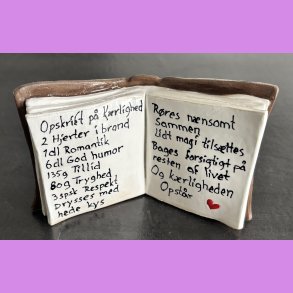 Opskrift på Kærlighed
2 Hjerter i brand
1dl Romantik
6dl God humor
135g Tillid
80g Tryghed
3 spsk Respekt
Drysses med
hede kys
Røres nænsomt
Sammen
Lidt magi tilsættes
Bages forsigtigt på
resten af livet
Og kærligheden
Opstår